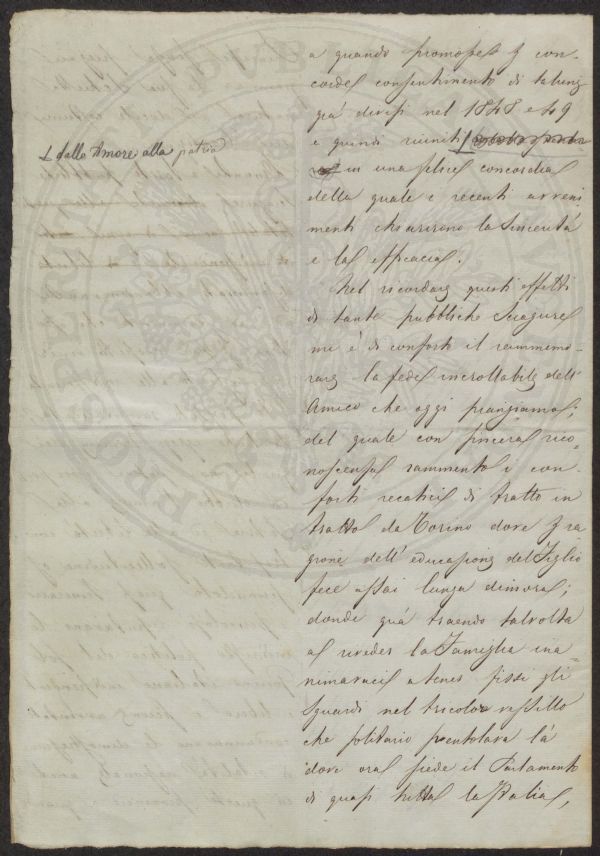 a quando promosse p con-
corde consentimento di taluni
già divisi nel 1848 e 49
e quindi riuniti
⊥ dallo Amore alla patria
in una felice concordia
della quale i recenti avveni-
menti chiarirono la sincerità
e la efficacia.
Nel ricordare questi effetti
di tante pubbliche sciagure
mi è di conforto il rammemo-
rare la fede incrollabile dell'
Amico che oggi piangiamo;
del quale con sincera rico-
noscenza rammento i con-
forti recatici di tratto in
tratto da Torino dove p ra-
gione dell' educazione del Figlio
fece assai lunga dimora;
donde quà traendo talvolta
a rivedere la Famiglia ina-
nimavaci a tener fissi gli
sguardi nel tricolor vessillo
che solitario sventolava là
dove ora siede il Parlamento
di quasi tutta la Italia,